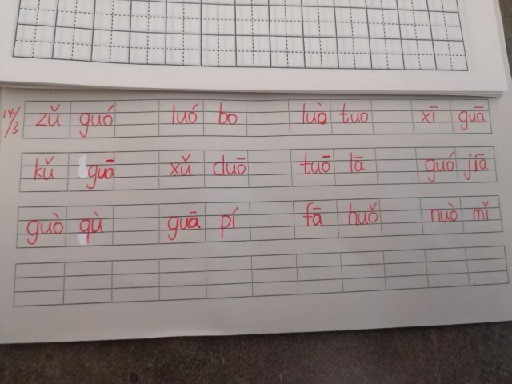 14/3
zǔ guó luó bo luò tuo xī guā
kǔ guā xǔ duō tuō lā guó jiā
guò qù guā pí fā huǒ nuò mǐ